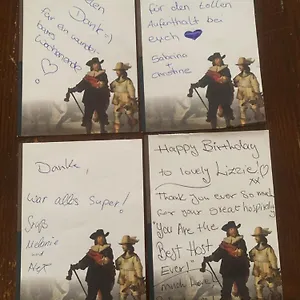 Dank!
Für ein wunder-
bares
Wochenende
für den tollen
Aufenthalt bei
euch
Sabrina
+
Christine
Danke,
war alles Super!
Gruß
Melanie
und
Happy Birthday
to lovely Lizzie!
xx
Thank you ever so much
for your great hospitality
"You Are the
Best Host
Ever!"
much love